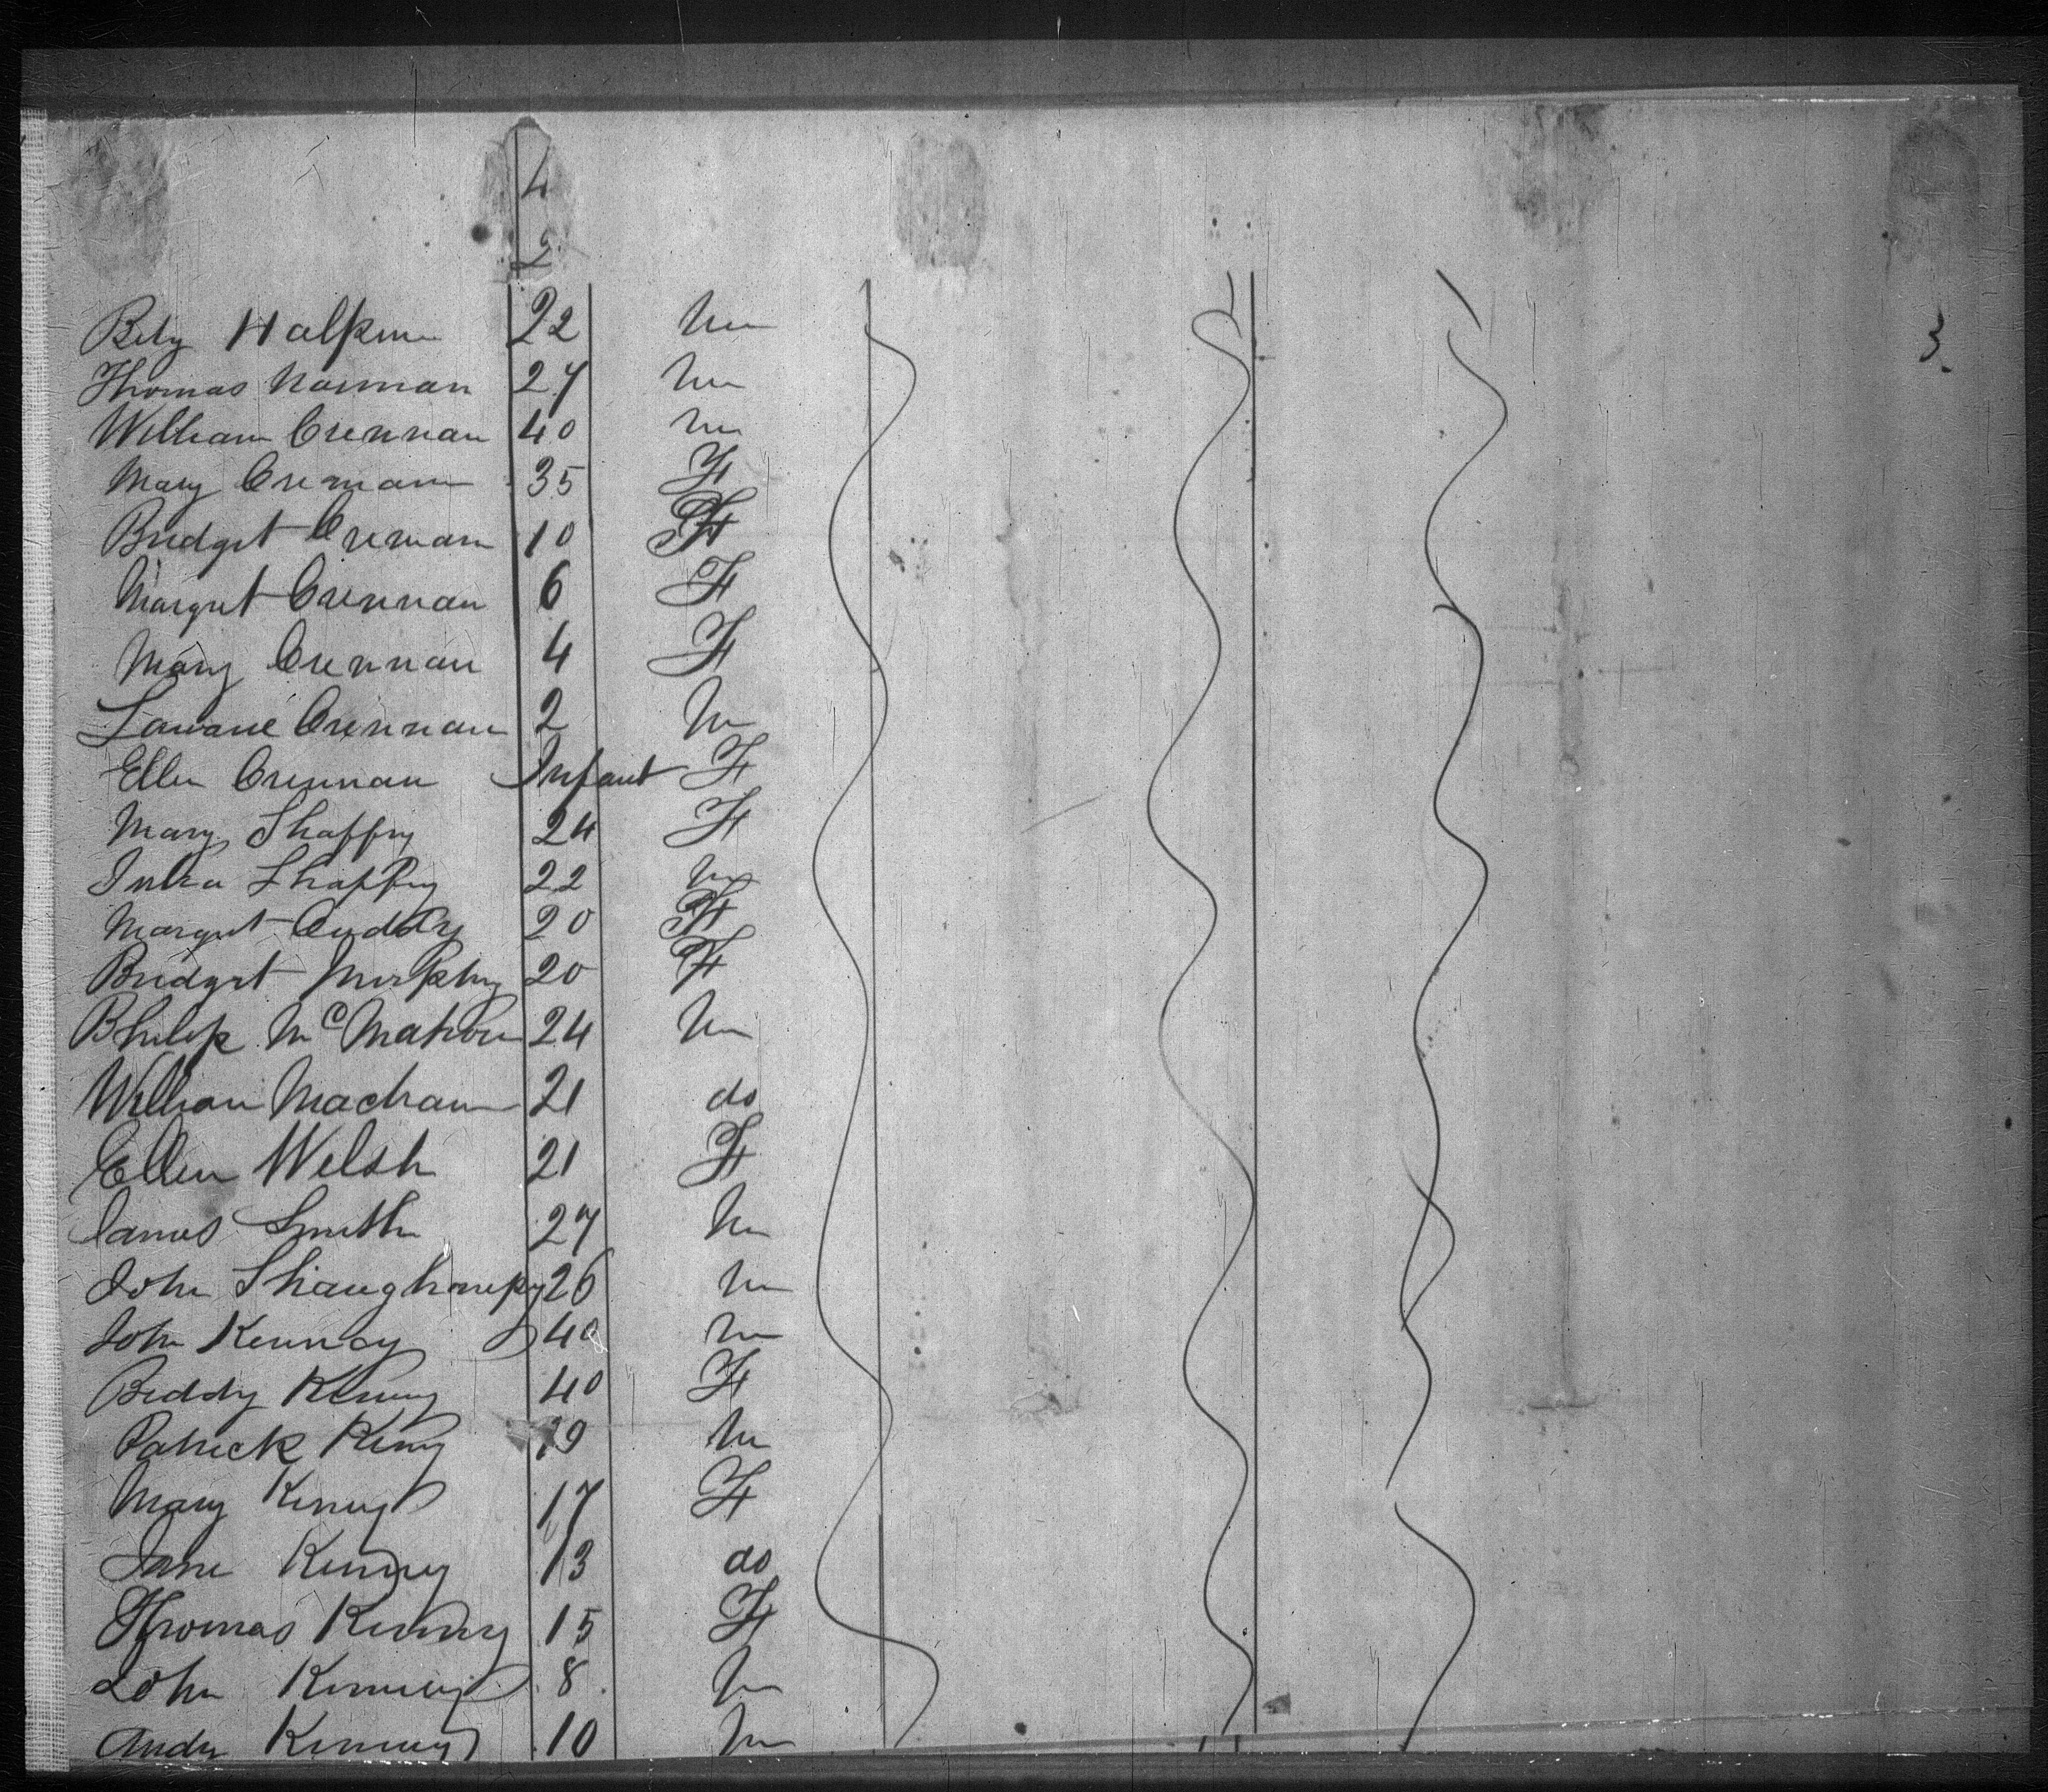 4
2
3
Bety Halpin 22 M
Thomas Norman 27 M
William Crennan 40 M
Mary Crennan 35 F
Bridget Crennan 10 F
Margret Crennan 6 F
Mary Crennan 4 F
Crennan 2 M
Ellen Crennan Infant F
Mary Shaffry 24 F
Shaffry 22 M
Margret Cuddy 20 F
Bridget Murphy 20 F
Philip McMahon 24 M
William 21 do
Ellen Welsh 21 F
James Smith 27 M
John Shaughnessy 26 M
John Kennay 40 M
Biddy Kenny 40 F
Patrick Keny 19 M
Mary Kenny 17 F
Jane Kenney 13 do
Thomas Kenny 15 F
John Kenney 8 M
Andy Kenney 10 M